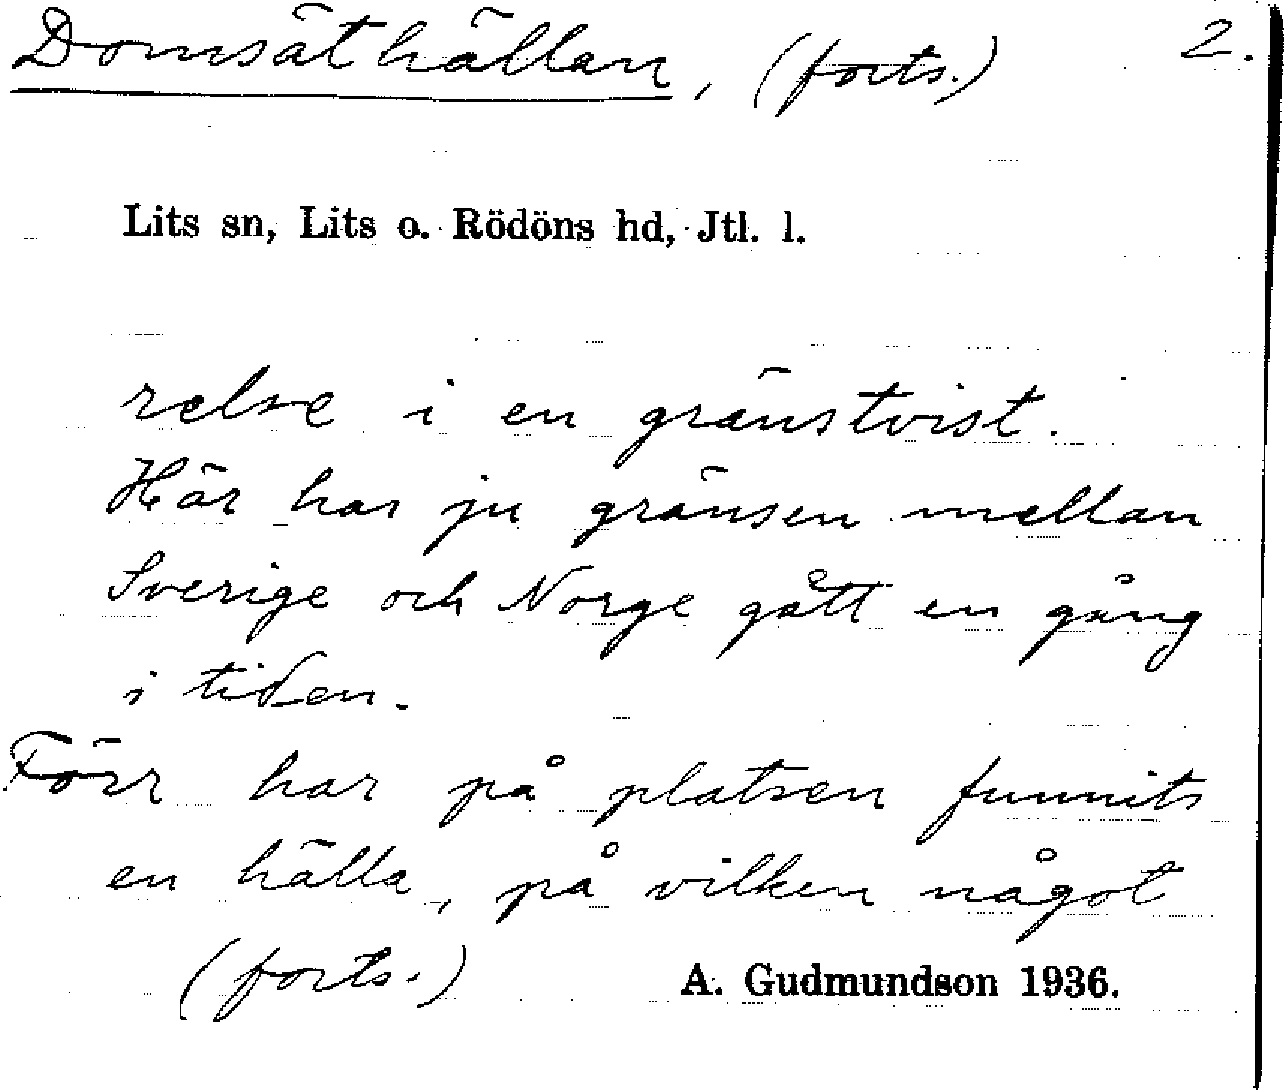 Domsäthällan, (forts.) 2.
Lits sn, Lits o. Rödöns hd, Jtl. l.
relse i en gränstvist.
Här har ju gränsen mellan
Sverige och Norge gått en gång
i tiden.
Förr har på platsen funnits
en hälla, på vilken något
(forts.) A. Gudmundson 1936.